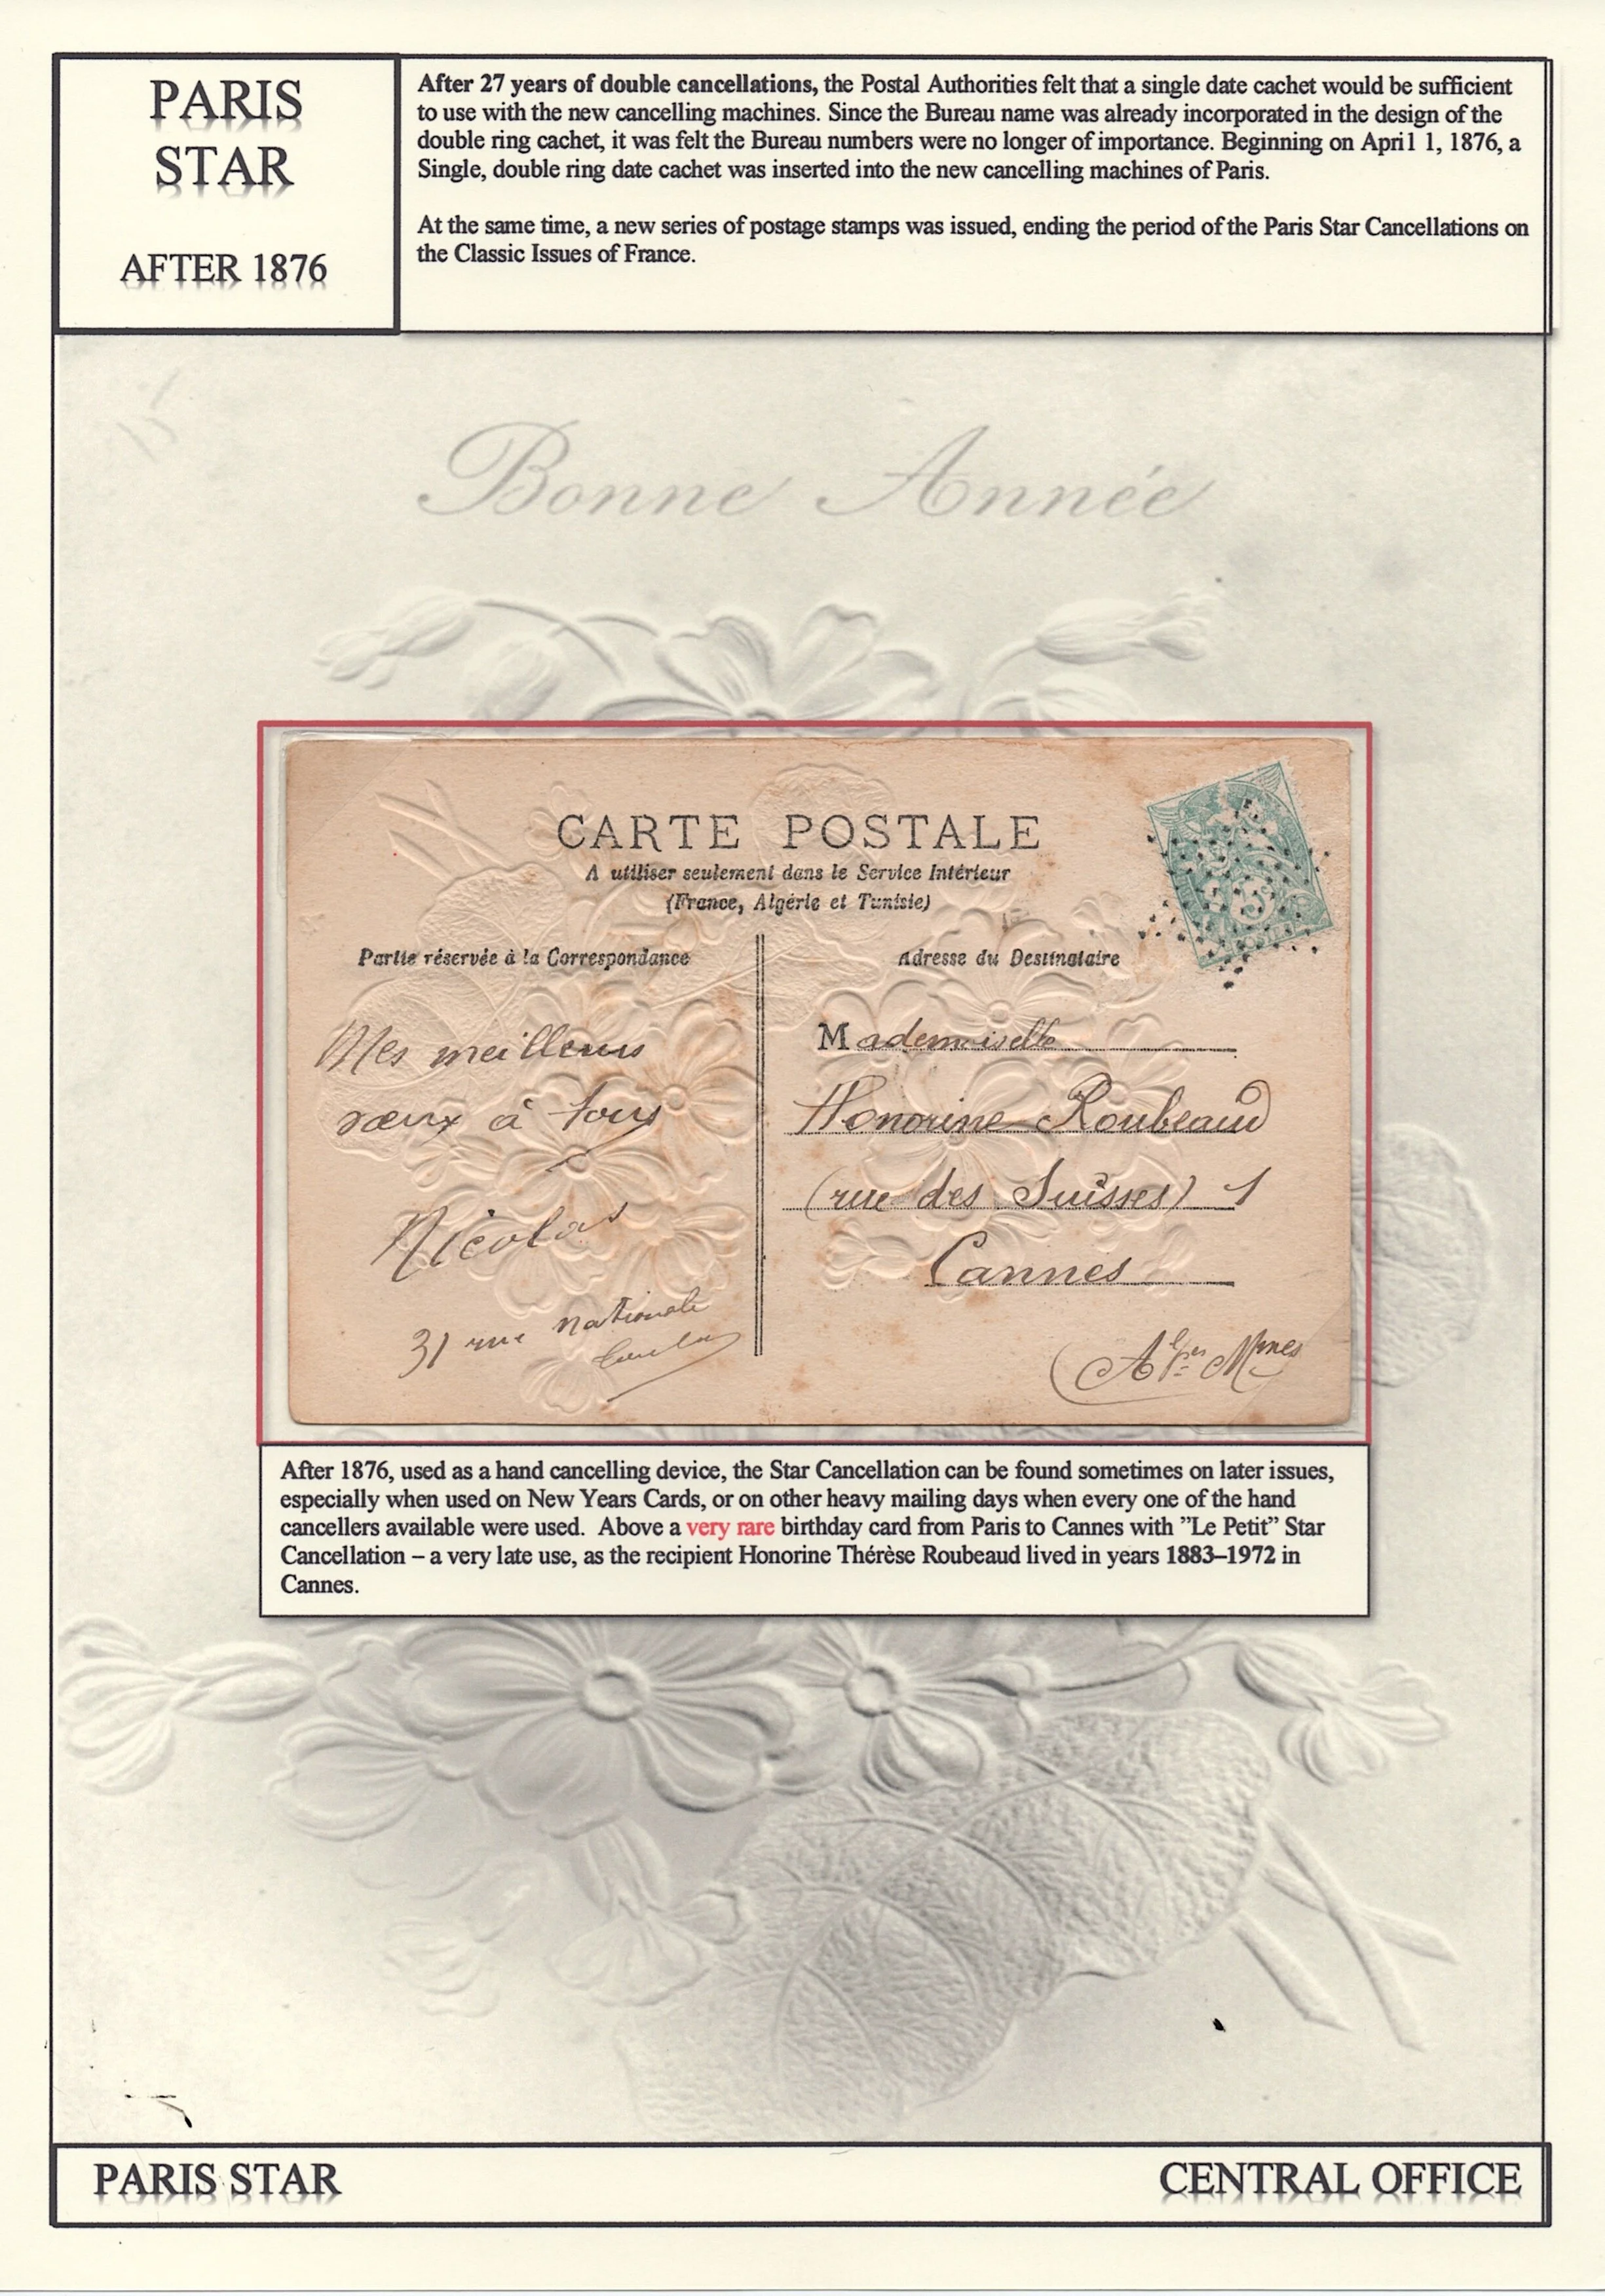 PARIS
STAR
AFTER 1876
After 27 years of double cancellations, the Postal Authorities felt that a single date cachet would be sufficient
to use with the new cancelling machines. Since the Bureau name was already incorporated in the design of the
double ring cachet, it was felt the Bureau numbers were no longer of importance. Beginning on April 1, 1876, a
Single, double ring date cachet was inserted into the new cancelling machines of Paris.
At the same time, a new series of postage stamps was issued, ending the period of the Paris Star Cancellations on
the Classic Issues of France.
Bonne Année
CARTE POSTALE
A utiliser seulement dans le Service Intérieur
(France, Algérie et Tunisie)
Partie réservée à la Correspondance
Mes meilleurs
vœux à tous
Nicolas
31 rue Nationale
Adresse du Destinataire
Mademoiselle
Honorine Roubeaud
(rue des Suisses) 1
Cannes
(Alpes Mmes
After 1876, used as a hand cancelling device, the Star Cancellation can be found sometimes on later issues,
especially when used on New Years Cards, or on other heavy mailing days when every one of the hand
cancellers available were used. Above a very rare birthday card from Paris to Cannes with ”Le Petit” Star
Cancellation – a very late use, as the recipient Honorine Thérèse Roubeaud lived in years 1883–1972 in
Cannes.
PARIS STAR
CENTRAL OFFICE